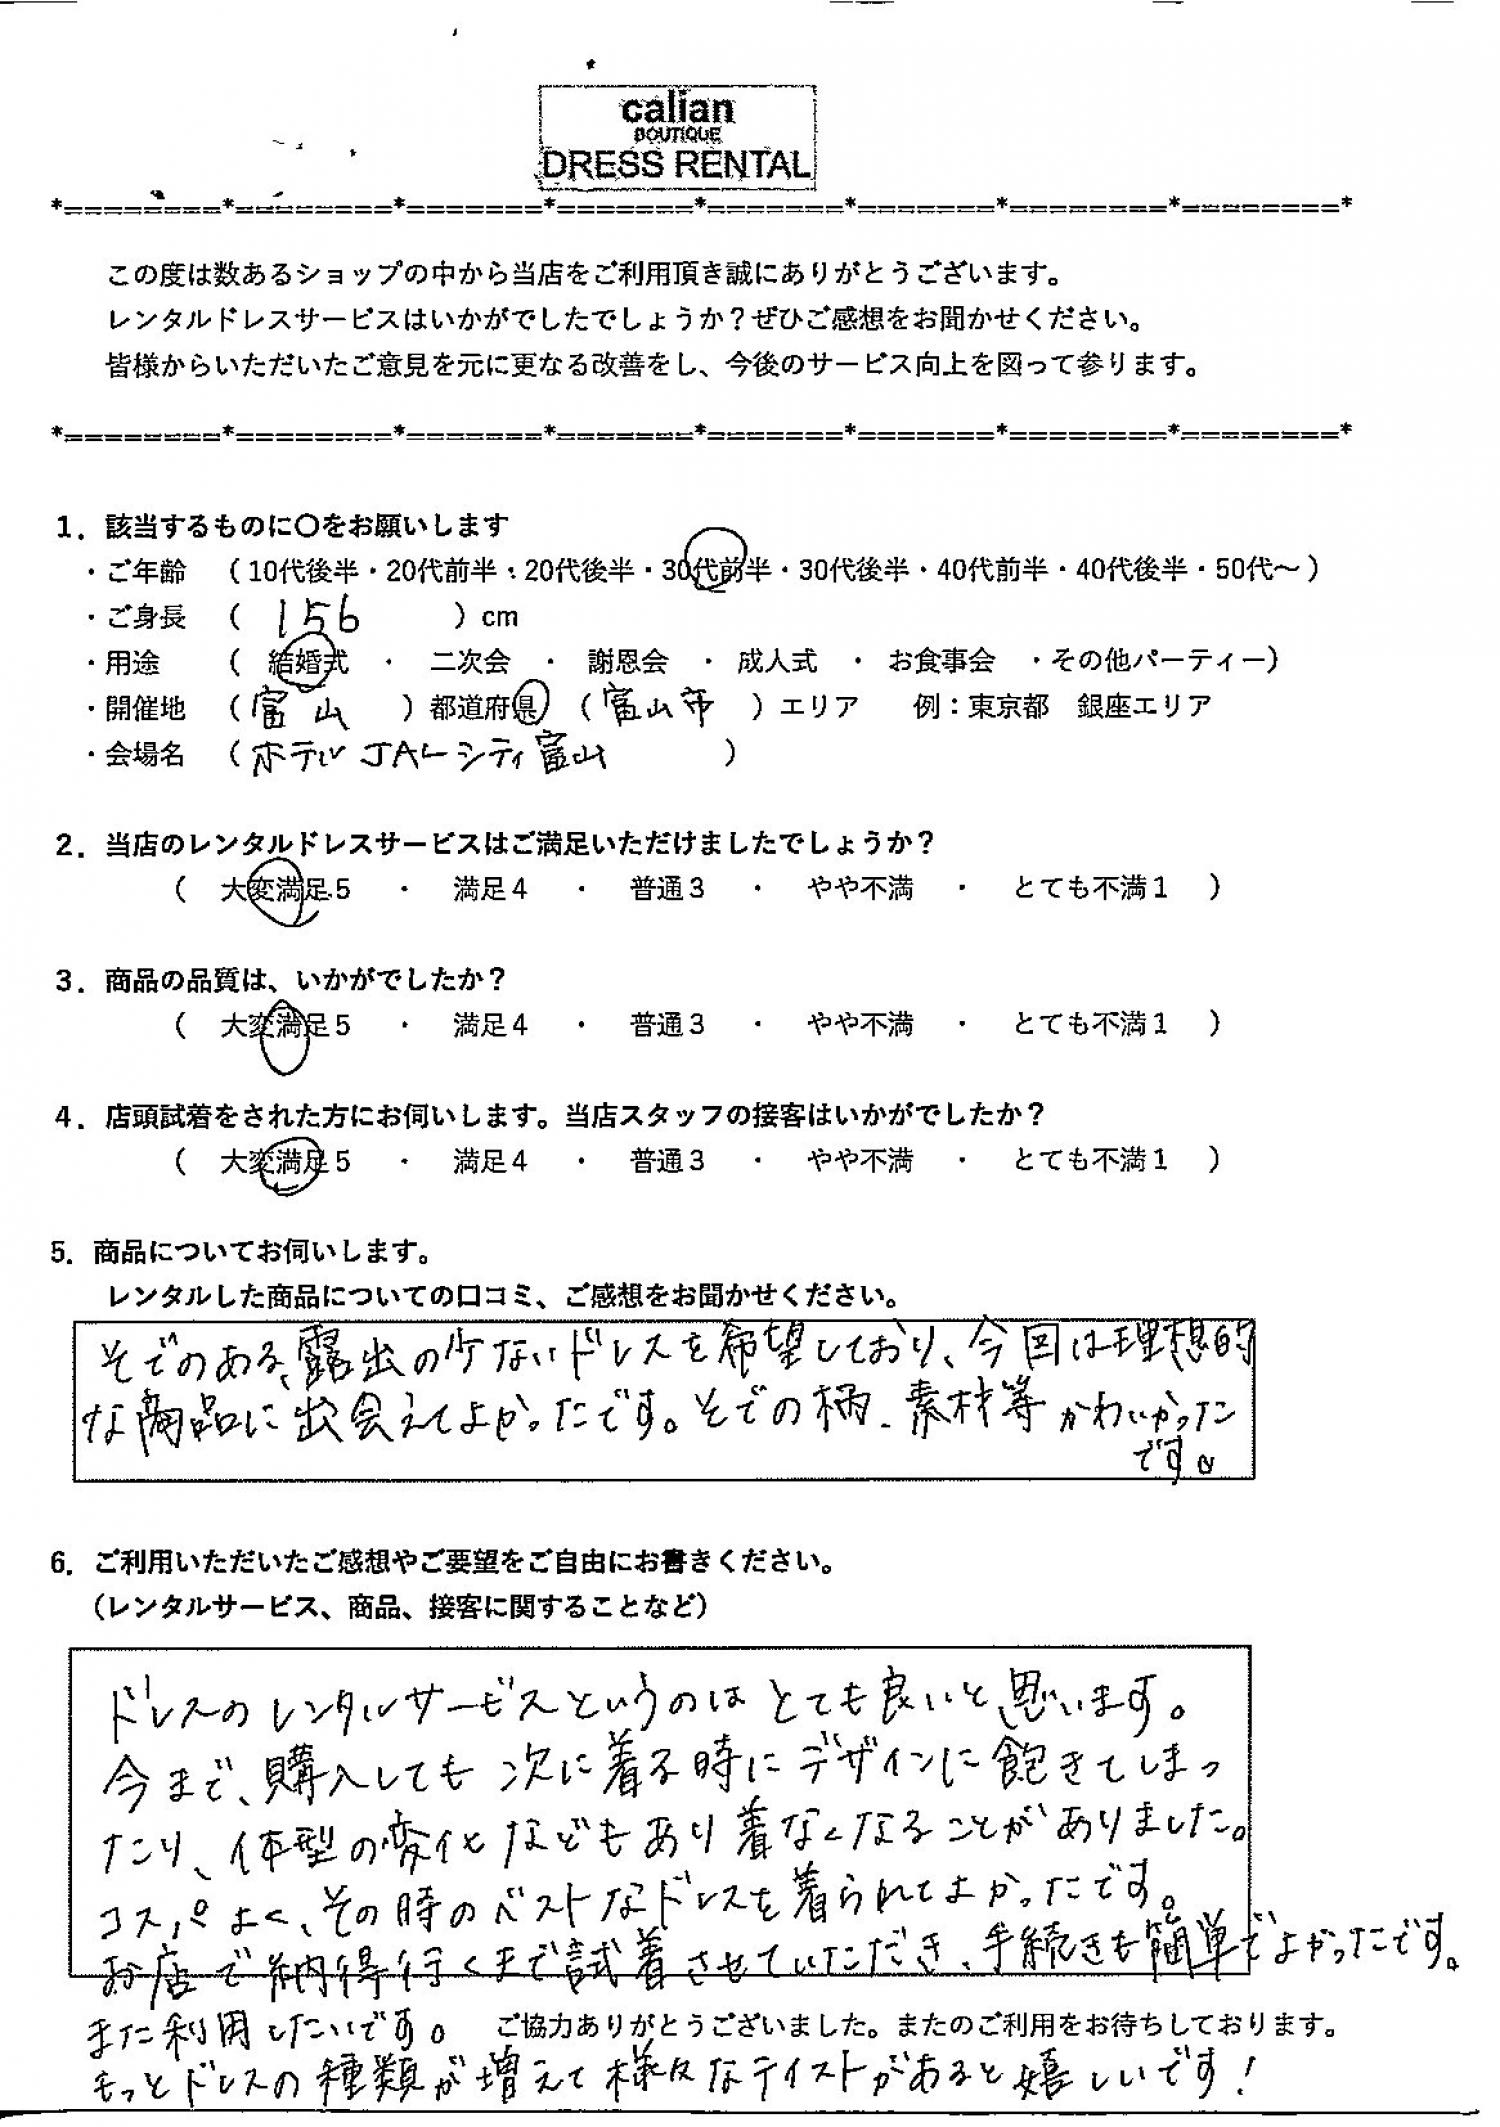 calian
BOUTIQUE
DRESS RENTAL
*========*========*=======*=======*=======*=======*========*========*
この度は数あるショップの中から当店をご利用頂き誠にありがとうございます。
レンタルドレスサービスはいかがでしたでしょうか？ぜひご感想をお聞かせください。
皆様からいただいたご意見を元に更なる改善をし、今後のサービス向上を図って参ります。
*========*========*=======*=======*=======*=======*========*========*
1．該当するものに〇をお願いします
・ご年齢　（10代後半・20代前半・20代後半・30代前半・30代後半・40代前半・40代後半・50代～）
・ご身長　（ 156 ）cm
・用途　（ 結婚式 ・ 二次会 ・ 謝恩会 ・ 成人式 ・ お食事会 ・その他パーティー）
・開催地　（富山 ）都道府県 （富山市 ）エリア　例：東京都 銀座エリア
・会場名　（ホテルJALシティ富山 ）
2．当店のレンタルドレスサービスはご満足いただけましたでしょうか？
（ 大変満足5 ・ 満足4 ・ 普通3 ・ やや不満 ・ とても不満1 ）
3．商品の品質は、いかがでしたか？
（ 大変満足5 ・ 満足4 ・ 普通3 ・ やや不満 ・ とても不満1 ）
4．店頭試着をされた方にお伺いします。当店スタッフの接客はいかがでしたか？
（ 大変満足5 ・ 満足4 ・ 普通3 ・ やや不満 ・ とても不満1 ）
5．商品についてお伺いします。
レンタルした商品についての口コミ、ご感想をお聞かせください。
そでのある、露出の少ないドレスを希望しており、今回は理想的
な商品に出会えてよかったです。そでの柄、素材等かわいかった
です。
6．ご利用いただいたご感想やご要望をご自由にお書きください。
（レンタルサービス、商品、接客に関することなど）
ドレスのレンタルサービスというのはとても良いと思います。
今まで、購入しても次に着る時にデザインに飽きてしまっ
たり、体型の変化などもあり着なくなることがありました。
コスパよく、その時のベストなドレスを着られてよかったです。
お店で納得行くまで試着させていただき、手続きも簡単でよかったです。
また利用したいです。　ご協力ありがとうございました。またのご利用をお待ちしております。
もっとドレスの種類が増えて様々なテイストがあると嬉しいです！